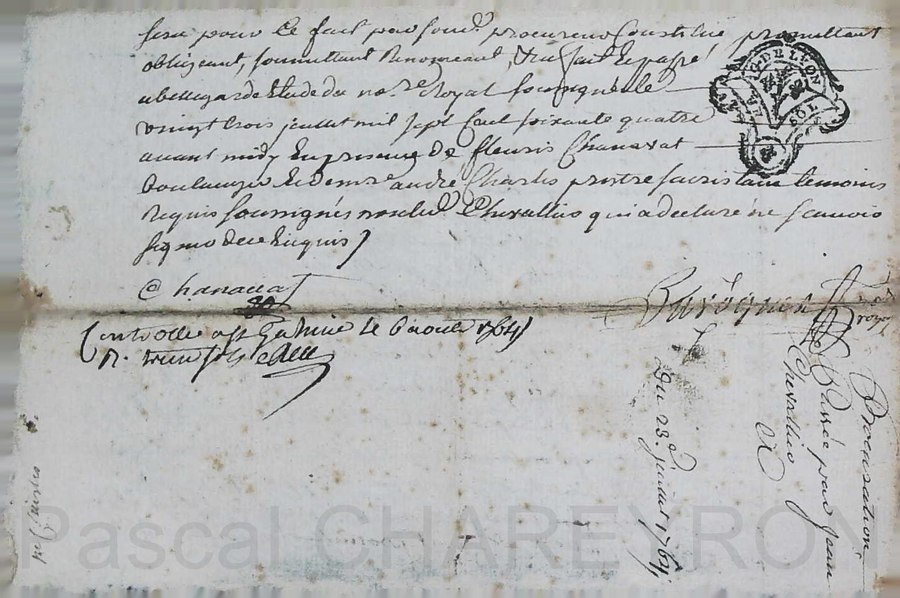 sera pour ce fait par son procureur constitué promettant
obligeant, soumettant Renonceant, &c fait & passé
a bellegarde Etude du no.re Royal soussigné le
vingt trois juillet mil sept cent soixante quatre
avant midy En presence de fleuris Chanavat
boulanger et de m.re andré Charles prêtre sacristain temoins
Requis soussignés non led. Chevallier qui a declaré ne scavoir
signer de ce Enquis
Chanavat
Controlle a St Galmier le aoust 1764
R. treize sols
GEN. DE LYON
Procuration
Passée par Jean
Chevallier
Du 23e. juillet 1764
Pascal CHAREYRON